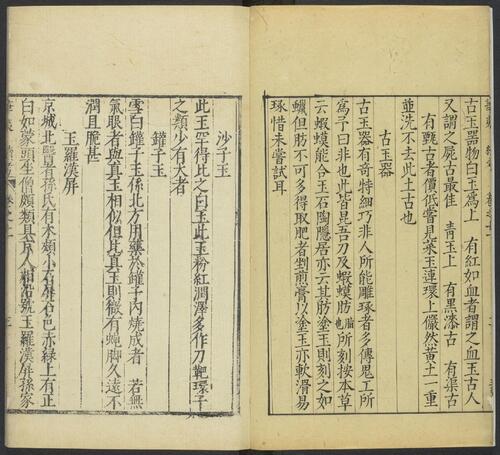 古玉器物白玉爲上 有紅如血者謂之血玉古人
又謂之屍古最佳 青玉上 有黑漆古 有渠古
有甎古者價低嘗見菜玉連環上儼然黄土一重
並洗不去此土古也
古玉器
古玉器有奇特細巧非人所能雕琢者多傳鬼工所
爲予曰非也此皆昆吾刀及蝦蟇肪脂也所刻按本草
云蝦蟆能合玉石陶隱居亦云其肪塗玉則刻之如
蠟但肪不可多得取肥者剉煎膏以塗玉亦軟滑易
琢惜未嘗試耳
沙子玉
此玉罕得比之白玉此玉粉紅潤澤多作刀靶環子
之類少有大者
罐子玉
雪白罐子玉係北方用藥於罐子内燒成者 若無
氣眼者與真玉相似但比真玉則微有蠅脚久遠不
潤且脆甚
玉羅漢屏
京城北 夏有孫氏有木類小石屏石色赤緑上有正
白如蒙頭坐僧頗類真人相沿號玉羅漢屏孫家